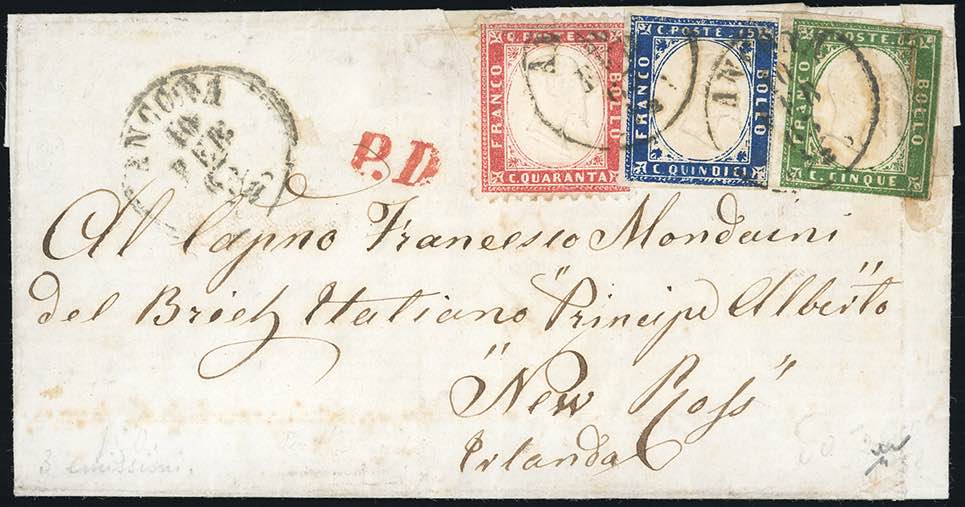 C. POSTE 15
FRANCO
BOLLO
C. QUARANTA
FRANCO
BOLLO
C. QUINDICI
FRANCO
BOLLO
C. CINQUE
ANCONA
10
P.D
Al Capno Francesco Mondaini
del Brich Italiano "Principe Alberto"
"New Ross"
Irlanda
3 emissioni.